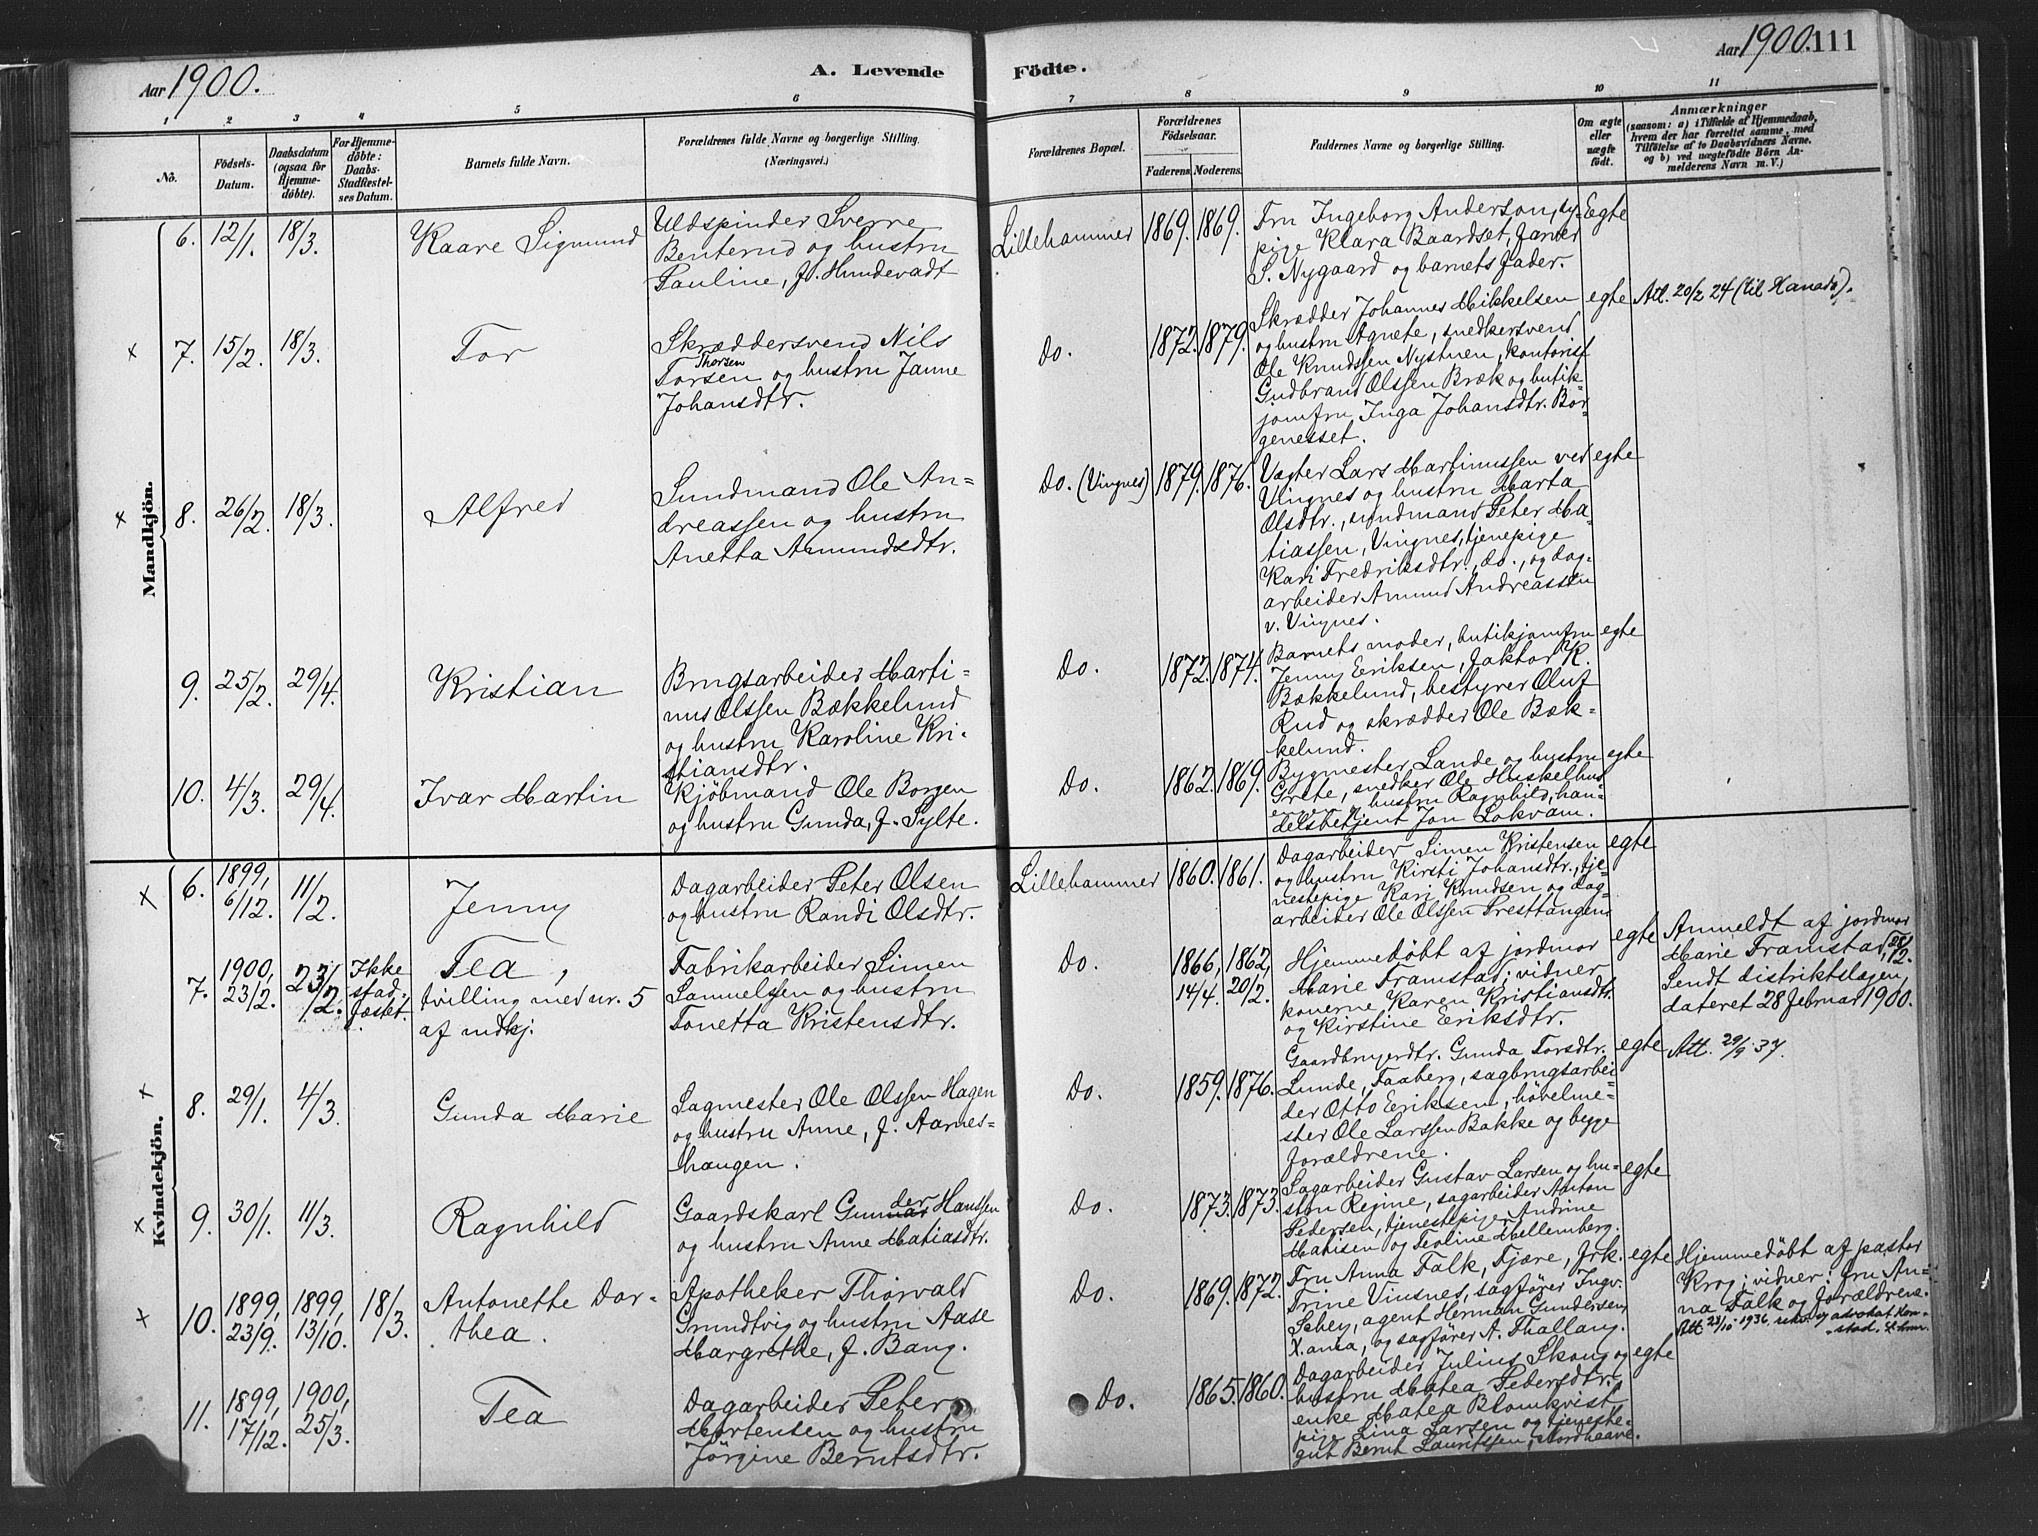 Aar 1900.
A. Levende
Födte.
Aar 1900. 111
1 2 3 4 5 6 7 8 9 10 11
No.
Födsels-
Datum.
Daabsdatum
(ogsaa for
Hjemme-
döbte).
For Hjemme-
döbte:
Daabs-
Stadfæstel-
ses Datum.
Barnets fulde Navn.
Forældrenes fulde Navne og borgerlige Stilling.
(Næringsvei.)
Forældrenes Bopæl.
Forældrenes
Födselsaar.
Faderens. Moderens.
Faddernes Navne og borgerlige Stilling.
Om ægte
eller
uægte
födt.
Anmærkninger
(saasom: a) i Tilfælde af Hjemmedaab,
hvem der har forrettet samme, med
Tilföielse af to Daabsvidners Navne,
og b) ved uægtefödte Börn An-
melderens Navn m. V.)
Mandkjön.
6. 12/1. 18/3.
Kaare Sigmund
Uldspinder Sverre
Benterud og hustru
Pauline, f. Hundevadt
Lillehammer 1869. 1869.
Fru Ingeborg Anderson, sy-
pige Klara Baardset, Janer
S. Nygaard og barnets fader.
Egte
7. 15/2. 18/3.
Tor
Skræddersvend Nils
Thorsen
Torsen og hustru Janne
Johansdtr.
Do. 1872. 1879.
Skrædder Johannes Mikkelsen
og hustru Agnete, snedkersvend
Ole Knudssen Nystuen, kontorist
Gudbrand Olssen Bræk og butik-
jomfru Inga Johansdtr. Bor-
genesset.
egte
Att. 20/2 24 (til Kanada).
8. 26/2. 18/3.
Alfred
Sundmand Ole An-
dreassen og hustru
Anetta Amundsdtr.
Do. (Vingnes) 1879. 1876.
Vagter Lars Martinussen ved
Vingnes og hustru Marta
Olsdtr., sundmand Peter Ma-
tiassen, Vingnes, tjenepige
Kari Fredriksdtr., do., og dag-
arbeider Amund Andreassen
v. Vingnes.
egte
9. 25/2. 29/4.
Kristian
Brugsarbeider Marti-
nus Olssen Bækkelund
og hustru Karoline Kri-
stiansdtr.
Do. 1872. 1874.
Barnets moder, butikjomfru
Jenny Eriksen, faktor K.
Bækkelund, bestyrer Oluf
Rud og skrædder Ole Bæk-
kelund.
egte
10. 4/3. 29/4.
Ivar Martin
Kjöbmand Ole Borgen
og hustru Gunda, f. Sylte.
Do. 1862. 1869.
Bygmester Lande og hustru
Grete, snedker Ole Huskelhus
og hustru Ragnhild, han-
delsbetjent Jon Lokvam.
egte
Kvindekjön.
6. 1899, 6/12. 11/2.
Jenny
Dagarbeider Peter Olsen
og hustru Randi Olsdtr.
Lillehammer 1860. 1861.
Dagarbeider Simen Kristensen
og hustru Kirsti Johansdtr., tje-
nestepige Kari Knudsen og dag-
arbeider Ole Olssen Presttangen.
egte
7. 1900, 23/2. 23/2.
Ikke
stad-
fæstet.
Tea,
tvilling med nr. 5
af mdkj.
Fabrikarbeider Simen
Samuelsen og hustru
Tonetta Kristensdtr.
Do. 1866, 14/4. 1862, 20/2.
Hjemmedöbt af jordmor
Marie Framstad; vidner
konerne Karen Kristiansdtr.
og Kirstine Eriksdtr.
egte
Anmeldt af jordmor
Marie Framstad, 28/2.
Sendt distriktslægen,
dateret 28 februar 1900.
8. 29/1. 4/3.
Gunda Marie
Sagmester Ole Olssen Hagen
og hustru Anne, f. Aarnes-
haugen.
Do. 1859. 1876.
Gaardbrugerdtr. Gunda Torsdtr.
Lunde, Faaberg, sagbrugsarbei-
der Otto Eriksen, hövelme-
ster Ole Larssen Bakke og begge
forældrene.
egte
Att. 29/9 37.
9. 30/1. 11/3.
Ragnhild
Gaardskarl Gunder Hanssen
og hustru Anne Matiasdtr.
Do. 1873. 1873.
Sagarbeider Gustav Larsen og hu-
stru Regine, sagarbeider Anton
Pedersen, tjenestepige Andrine
Matisen og Teoline Mellemberg.
egte
10. 1899, 23/9. 1899, 13/10. 18/3.
Antonette Dor-
thea.
Apotheker Thorvald
Grundtvig og hustru Aase
Margrethe, f. Bang.
Do. 1869. 1872.
Fru Anna Falk, Tjære, frk.
Trine Vinsnes, sagförer Ingv.
Schey, agent Herman Gundersen,
X.ania, og sagförer A. Thallaug.
egte
Hjemmedöbt af pastor
Krog; vidner: fru An-
na Falk og forældrene.
Att. 23/10 1936
11. 1899, 17/12. 1900, 25/3.
Tea
Dagarbeider Peter
Mortensen og hustru
Jörgine Berntsdtr.
Do. 1865. 1860.
Dagarbeider Julius Skoug og
hustru Matea Pedersdtr.,
enke Matea Blomkvist,
pige Lina Larsen og tjeneste-
gut Bernt Lauritssen, Nordheave.
egte